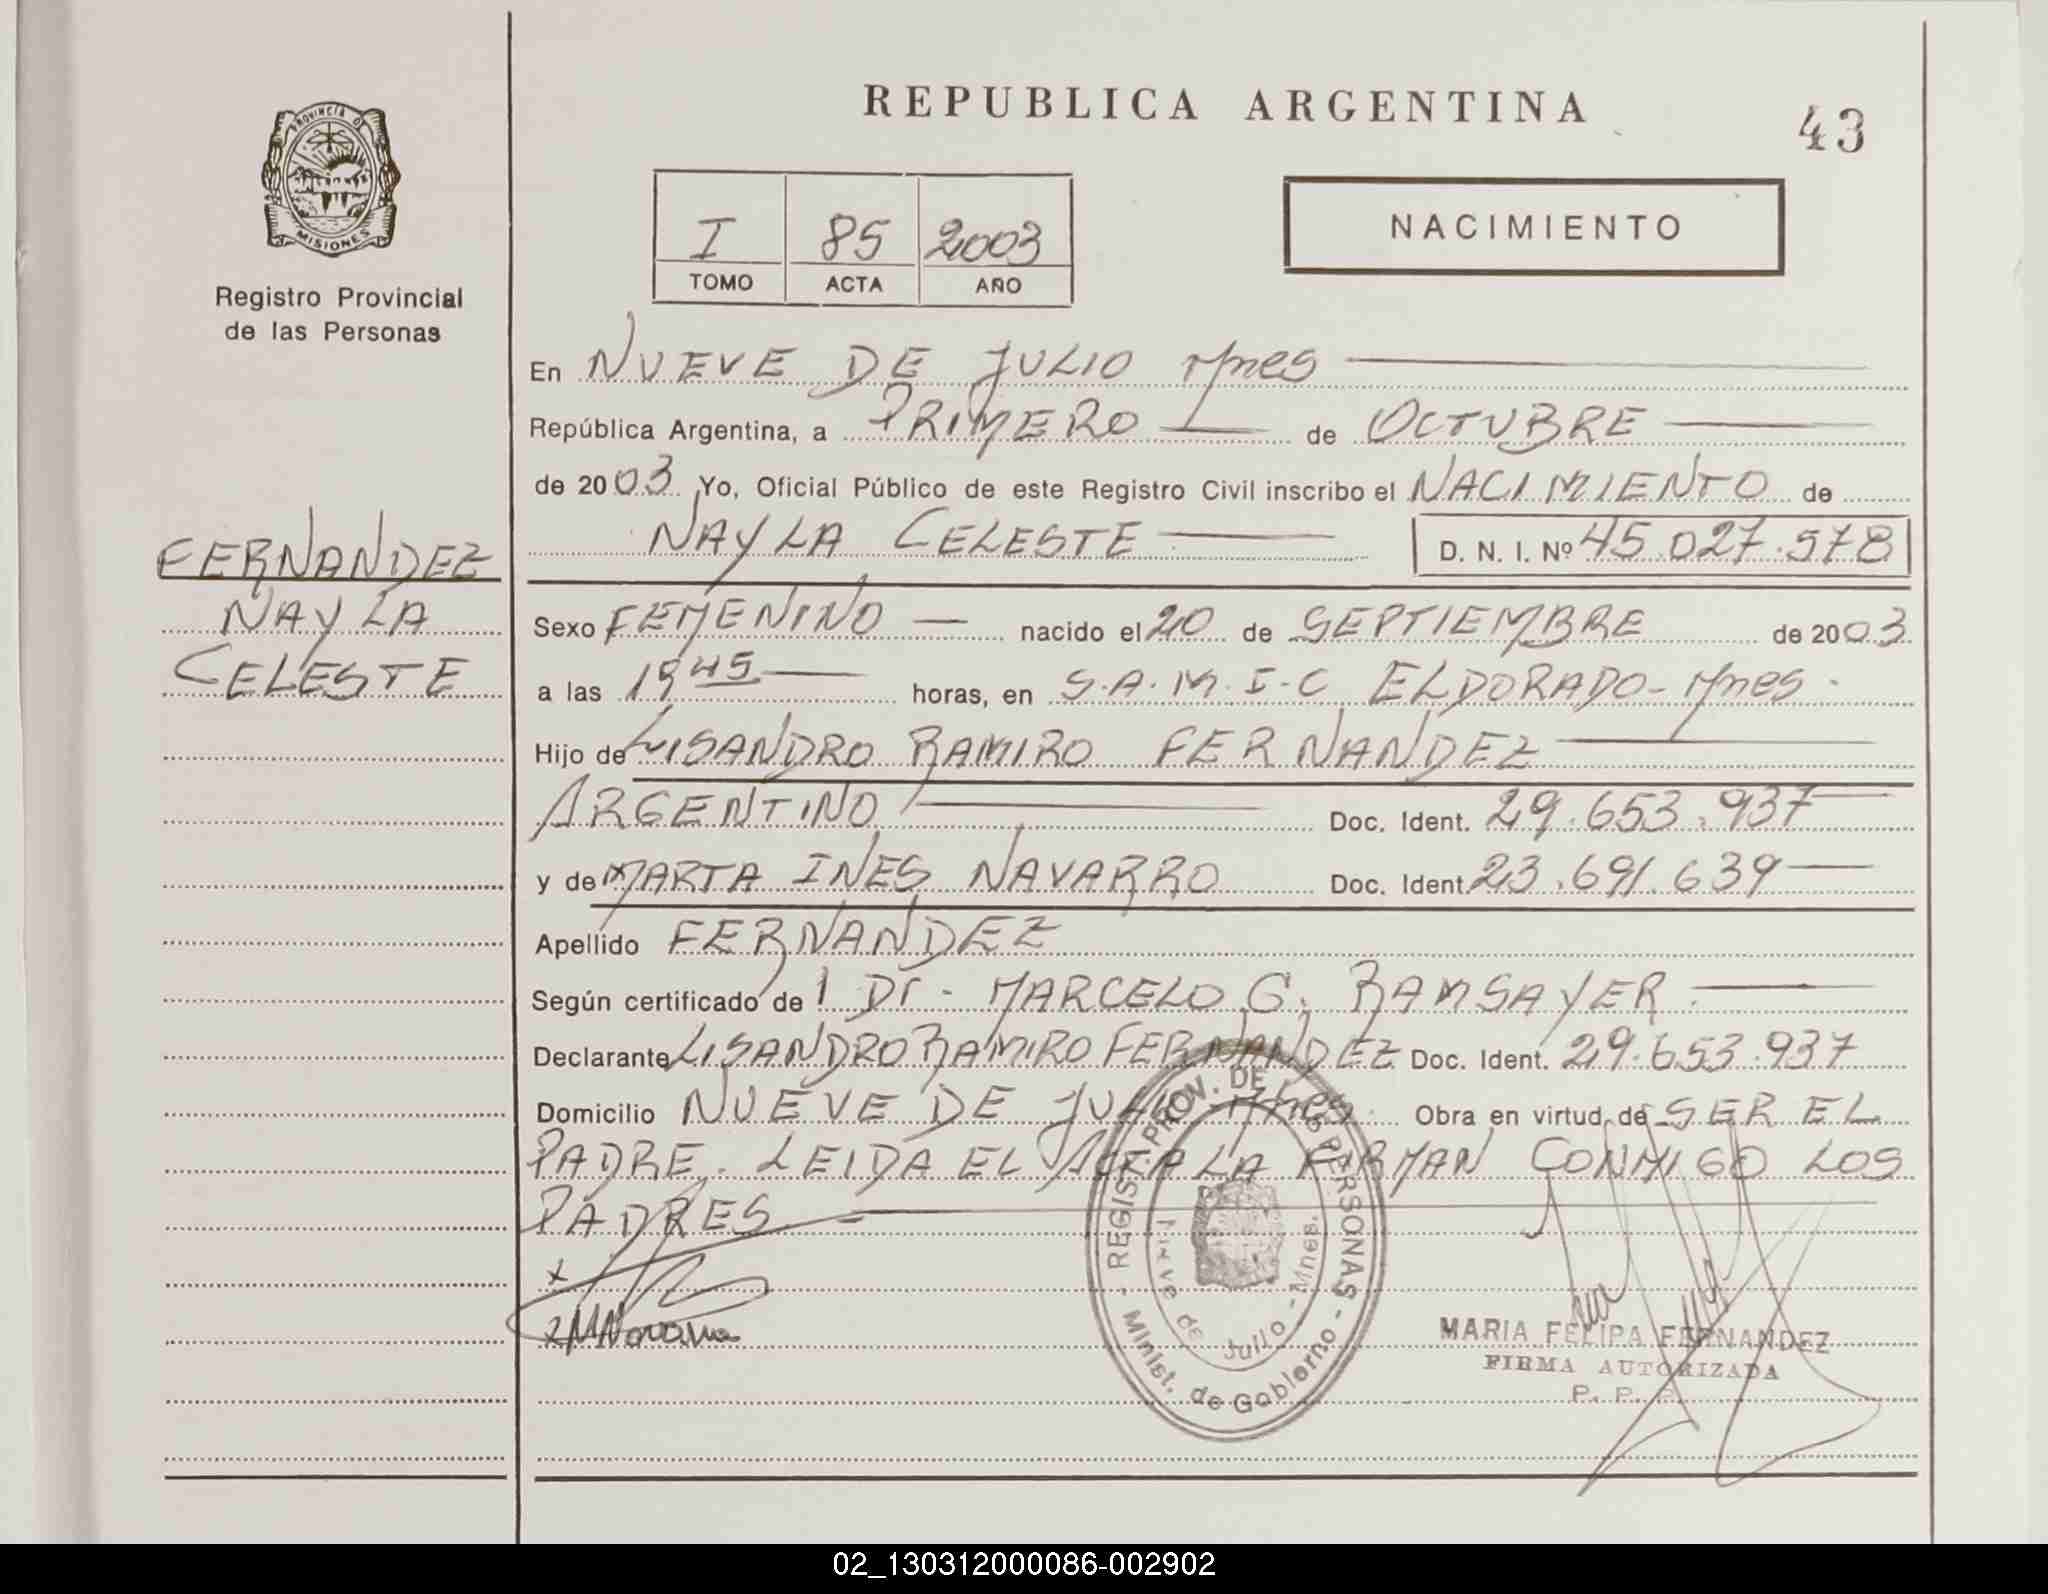 REPUBLICA ARGENTINA
43
PROVINCIA DE
MISIONES
Registro Provincial
de las Personas
I 85 2003
TOMO ACTA AÑO
NACIMIENTO
En NUEVE DE JULIO Mnes
República Argentina, a PRIMERO de OCTUBRE
de 2003 Yo, Oficial Público de este Registro Civil inscribo el NACIMIENTO de
NAYLA CELESTE D. N. I. Nº 45.027.578
FERNANDEZ
NAYLA
CELESTE
Sexo FEMENINO nacido el 20 de SEPTIEMBRE de 2003
a las 19 45 horas, en S.A.M.I.C ELDORADO-Mnes.
Hijo de LISANDRO RAMIRO FERNANDEZ
ARGENTINO Doc. Ident. 29.653.937
y de MARTA INES NAVARRO Doc. Ident. 23.691.639
Apellido FERNANDEZ
Según certificado de l Dr. MARCELO G. RAMSAYER
Declarante LISANDRO RAMIRO FERNANDEZ Doc. Ident. 29.653.937
Domicilio NUEVE DE JULIO Mnes. Obra en virtud de SER EL
PADRE. LEIDA EL ACTA LA FIRMAN CONMIGO LOS
PADRES
x
x MNavarro
REGIST. PROV. DE PERSONAS
Minist. de Gobierno
Nueve de Julio - Mnes.
MARIA FELIPA FERNANDEZ
FIRMA AUTORIZADA
02_130312000086-002902